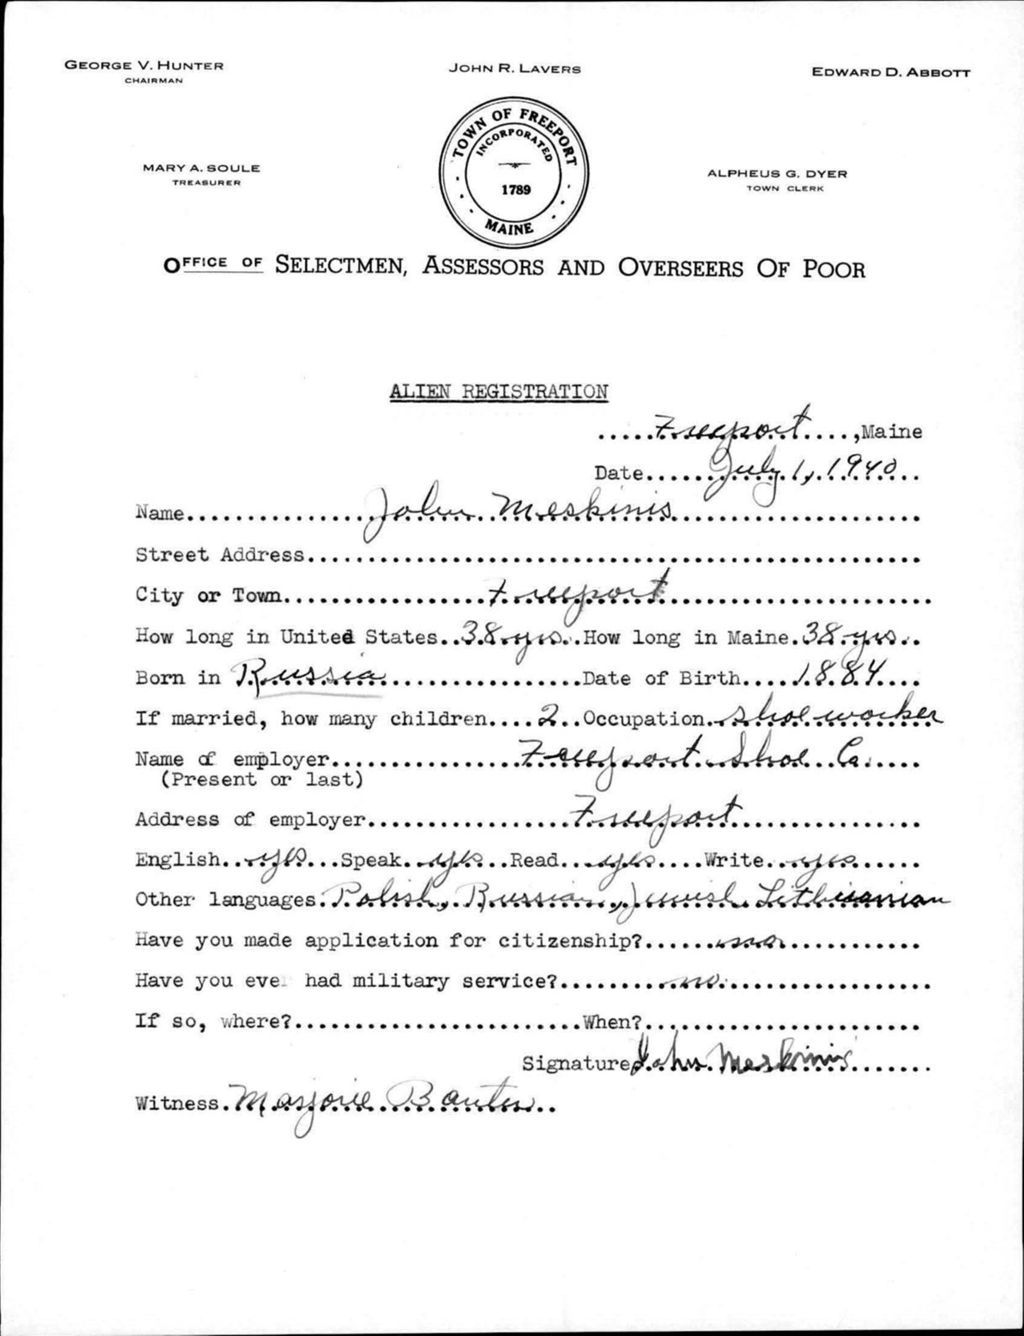 GEORGE V. HUNTER
CHAIRMAN
JOHN R. LAVERS
EDWARD D. ABBOTT
MARY A. SOULE
TREASURER
TOWN OF FREEPORT
INCORPORATED
1789
MAINE
ALPHEUS G. DYER
TOWN CLERK
OFFICE OF SELECTMEN, ASSESSORS AND OVERSEERS OF POOR
ALIEN REGISTRATION
.....Freeport....,Maine
Date......July 1, 1940...
Name...............John Meskinis...................
Street Address..........................................
City or Town.................Freeport...................
How long in United States..38 yrs..How long in Maine.38 yrs..
Born in Russia.................Date of Birth....1884....
If married, how many children....2..Occupation.shoe worker
Name of employer...............Freeport Shoe Co.....
(Present or last)
Address of employer..................Freeport.................
English..yes...Speak..yes..Read...yes....Write..yes......
Other languages.Polish, Russian, Jewish Lithuanian
Have you made application for citizenship?......no............
Have you eve had military service?.........no..................
If so, where?........................When?........................
Signature John Meskinis.......
Witness.Marjorie